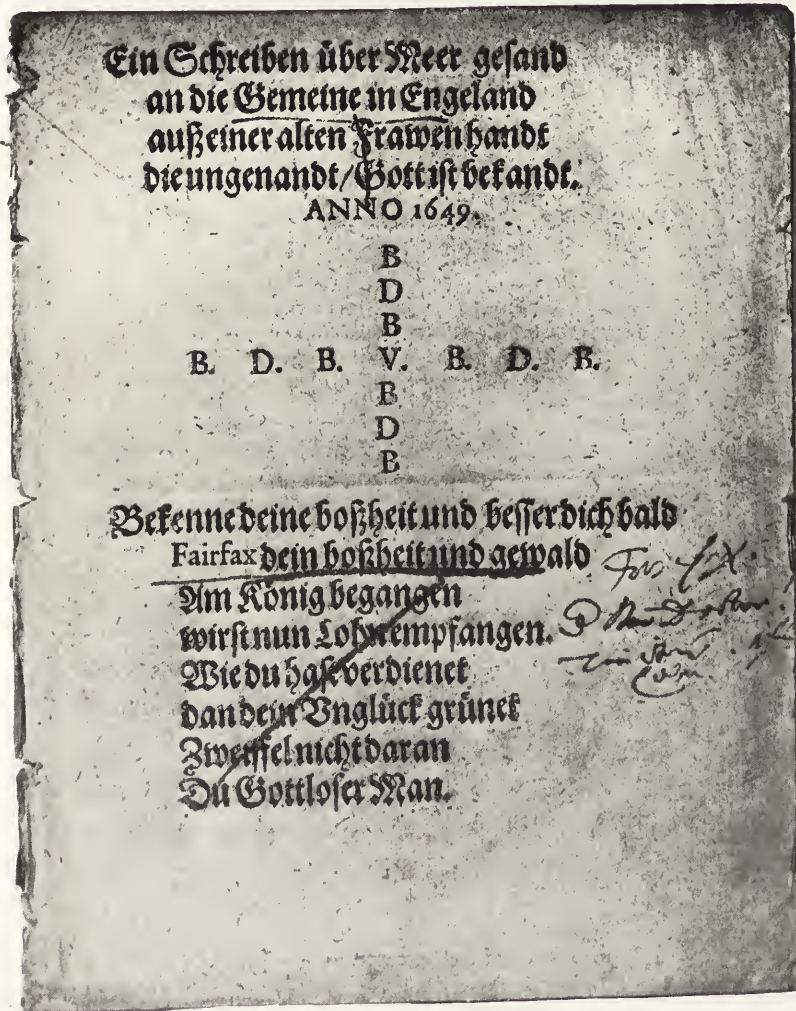 Ein Schreiben über Meer gesand
an die Gemeine in Engeland
auß einer alten Frawen handt
die ungenandt/Gott ist bekandt.
ANNO 1649.
B
D
B
B. D. B. V. B. D. B.
B
D
B
Bekenne deine boßheit und besser dich bald
Fairfax dein boßheit und gewald
Am König begangen
wirst nun Lohn empfangen.
Wie du hast verdienet
dan dein Vnglück grünet
Zweiffel nicht daran
Du Gottloser Man.